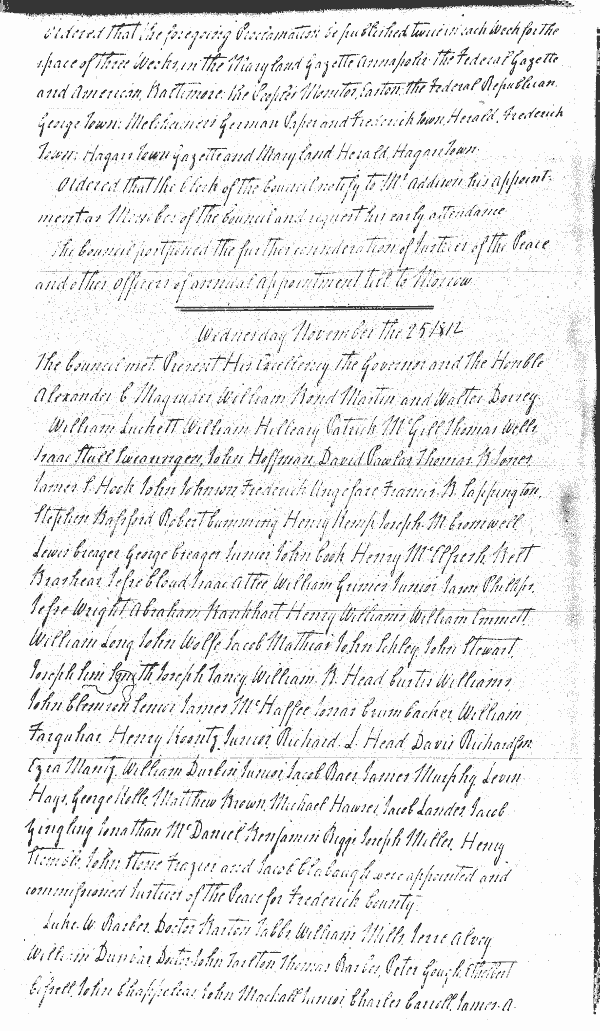 Ordered that the foregoing Proclamation be published twice in each Week for the
space of three Weeks, in the Maryland Gazette Annapolis the Federal Gazette
and American, Baltimore. the Peoples Monitor, Easton, the Federal Republican,
George Town; German Paper and Frederick Town, Herald, Frederick
Town; Hagars Town Gazette and Maryland Herald, Hagars Town.
Ordered that the Clerk of the Council notify to Mr Addison his appoint-
ment as Member of the Council and request his early attendance
The Council postponed the further consideration of Justices of the Peace
and other Officers of annual Appointment till to Morrow.
Wednesday November the 25 1812
The Council met. Present His Excellency the Governor and The Honble
Alexander C Magruder William Bond Martin and Walter Dorsey.
William Luckett William Hilleary Patrick McGill Thomas Wells
Isaac Hull Swearingen, John Hoffman, David Thomas B Jones
James S. Hook John Johnson Frederick Francis B. Sappington,
Stephen Basford Robert Cumming Henry Kemp Joseph M Cromwell
Lewis Creager George Creager Junior John Cook Henry McElfresh Belt
Brashear Jesse Cloud Isaac Atlee William Grimes Junior Jason Phillips,
Jesse Wright Abraham Henry Williams William Emmett,
William Long John Wolfe Jacob Mathias John Schley, John Stewart,
Joseph Sim Smith Joseph Taney William B. Head Curtis Williams,
John Clemson Senior James McHaffee Jonas Crumbacker William
Farquhar Henry Koontz Junior Richard L Head Davis Richardson
Ezra Mantz William Durbin Junior Jacob Baer James Murphy Levin
Hays, George Matthew Brown, Michael Hawser, Jacob Landes Jacob
Yingling Jonathan McDaniel Benjamin Biggs Joseph Miller, Henry
John Hone Frazier and Jacob Clabaugh were appointed and
commissioned Justices of the Peace for Frederick County
Luke W. Barber, Doctor Barton Tabbs William Mills, Jesse Alvey
William Dunbar Doctor John Tarlton, Thomas Barber, Peter Gough, Ethelbert
Cissell, John Chappelear, John Mackall Junior Charles Carroll, James A.